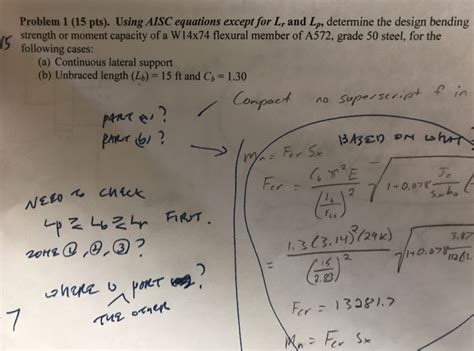 Problem 1 (15 pts). Using AISC equations except for Lr and Lp, determine the design bending
strength or moment capacity of a W14x74 flexural member of A572, grade 50 steel, for the
following cases:
(a) Continuous lateral support
(b) Unbraced length (Lb) = 15 ft and Cb = 1.30
15
Compact no superscript f in
PART a)?
PART b)?
BASED ON WHAT
Mn = Fcr Sx
Fcr = Cb π² E / (Lb/rts)² √1+0.078 Jc/Sxho
NEED TO CHECK
Lp ≥ Lb ≥ Lr FIRST.
ZONE ①, ②, ③?
= 1.3 (3.14)² (29k) / (15/2.83)² √1+0.078 3.87/112(13.
WHERE IS PART ?
THE OTHER
7
Fcr = 13281.7
Mn = Fcr Sx